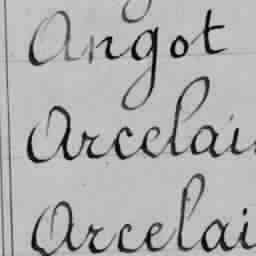 Angot
Arcelai
Arcelai